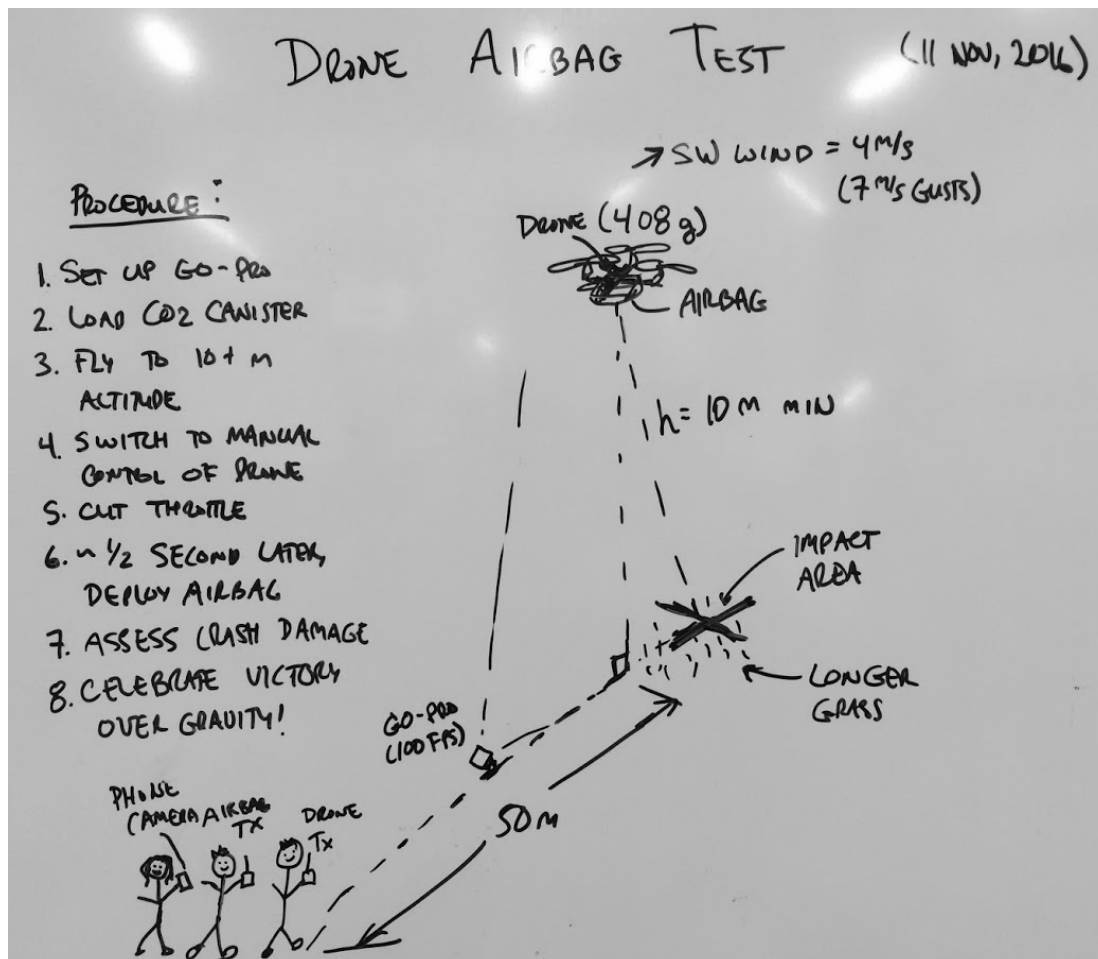 DRONE AIRBAG TEST (11 NOV, 2016)
→ SW WIND = 4 M/S
(7 M/S GUSTS)
PROCEDURE:
1. SET UP GO-PRO
2. LOAD CO2 CANISTER
3. FLY TO 10+ M
ALTITUDE
4. SWITCH TO MANUAL
CONTROL OF DRONE
5. CUT THROTTLE
6. ~ 1/2 SECOND LATER,
DEPLOY AIRBAG
7. ASSESS CRASH DAMAGE
8. CELEBRATE VICTORY
OVER GRAVITY!
DRONE (408g)
AIRBAG
h = 10 M MIN
IMPACT
AREA
LONGER
GRASS
GO-PRO
(100 FPS)
50 M
PHONE
CAMERA
AIRBAG
TX
DRONE
TX